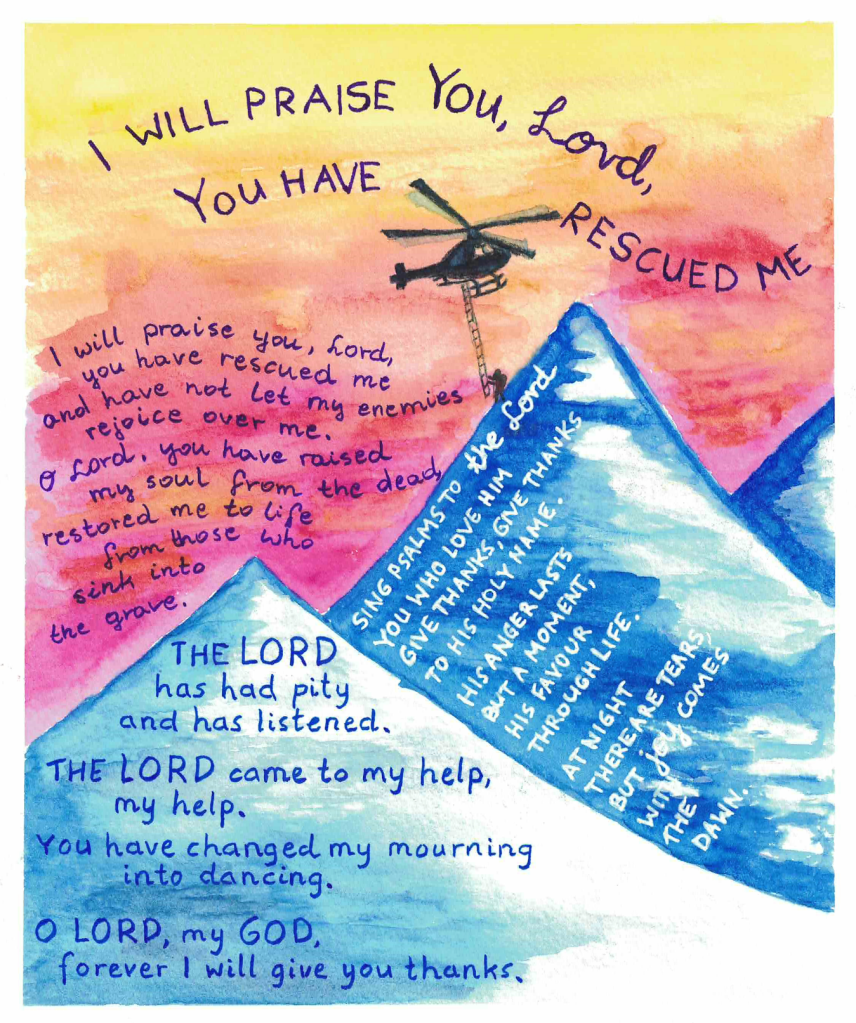 I WILL PRAISE YOU, Lord,
YOU HAVE RESCUED ME
I will praise you, Lord,
you have rescued me
and have not let my enemies
rejoice over me.
O Lord, you have raised
my soul from the dead,
restored me to life
from those who
sink into
the grave.
SING PSALMS TO the Lord
YOU WHO LOVE HIM
GIVE THANKS, GIVE THANKS
TO HIS HOLY NAME.
HIS ANGER LASTS
BUT A MOMENT,
HIS FAVOUR
THROUGH LIFE.
AT NIGHT
THERE ARE TEARS,
BUT joy COMES
WITH
THE
DAWN.
THE LORD
has had pity
and has listened.
THE LORD came to my help,
my help.
You have changed my mourning
into dancing.
O LORD, my GOD,
forever I will give you thanks.